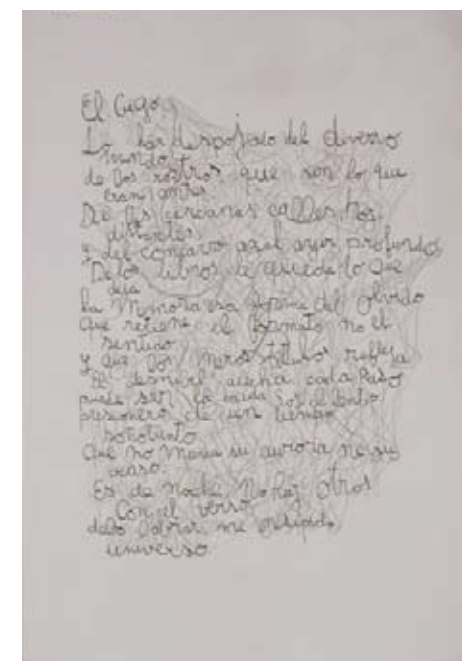 El Ciego
Lo han despojado del diverso
mundo
de los rostros que son lo que
eran antes
De las cercanas calles, hoy
distantes
y del concavo azul ayer profundo
De los libros le queda lo que
deja
la memoria esa forma del olvido
Que retiene el formato no el
sentido
Y que los meros titulos refleja
El desnivel acecha cada Paso
puede ser la caida Soy el lento
prisionero de un tiempo
soñoliento
Que no marca su aurora ni su
ocaso.
Es de noche. No hay otros
Con el verso
debo labrar mi insipido
universo.